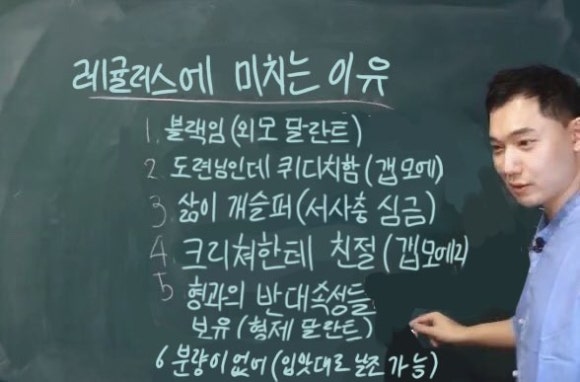 레귤러스에 미치는 이유
1. 블랙임 (외모 달란트)
2. 도련님인데 퀴디치함 (갭 모에)
3 삶이 개슬퍼 (서사충 심금)
4 크리쳐한테 친절 (갭모에2)
5 형과의 반대속성들
보유 (형제 달란트)
6 분량이 없어 (입맛대로 날조 가능)